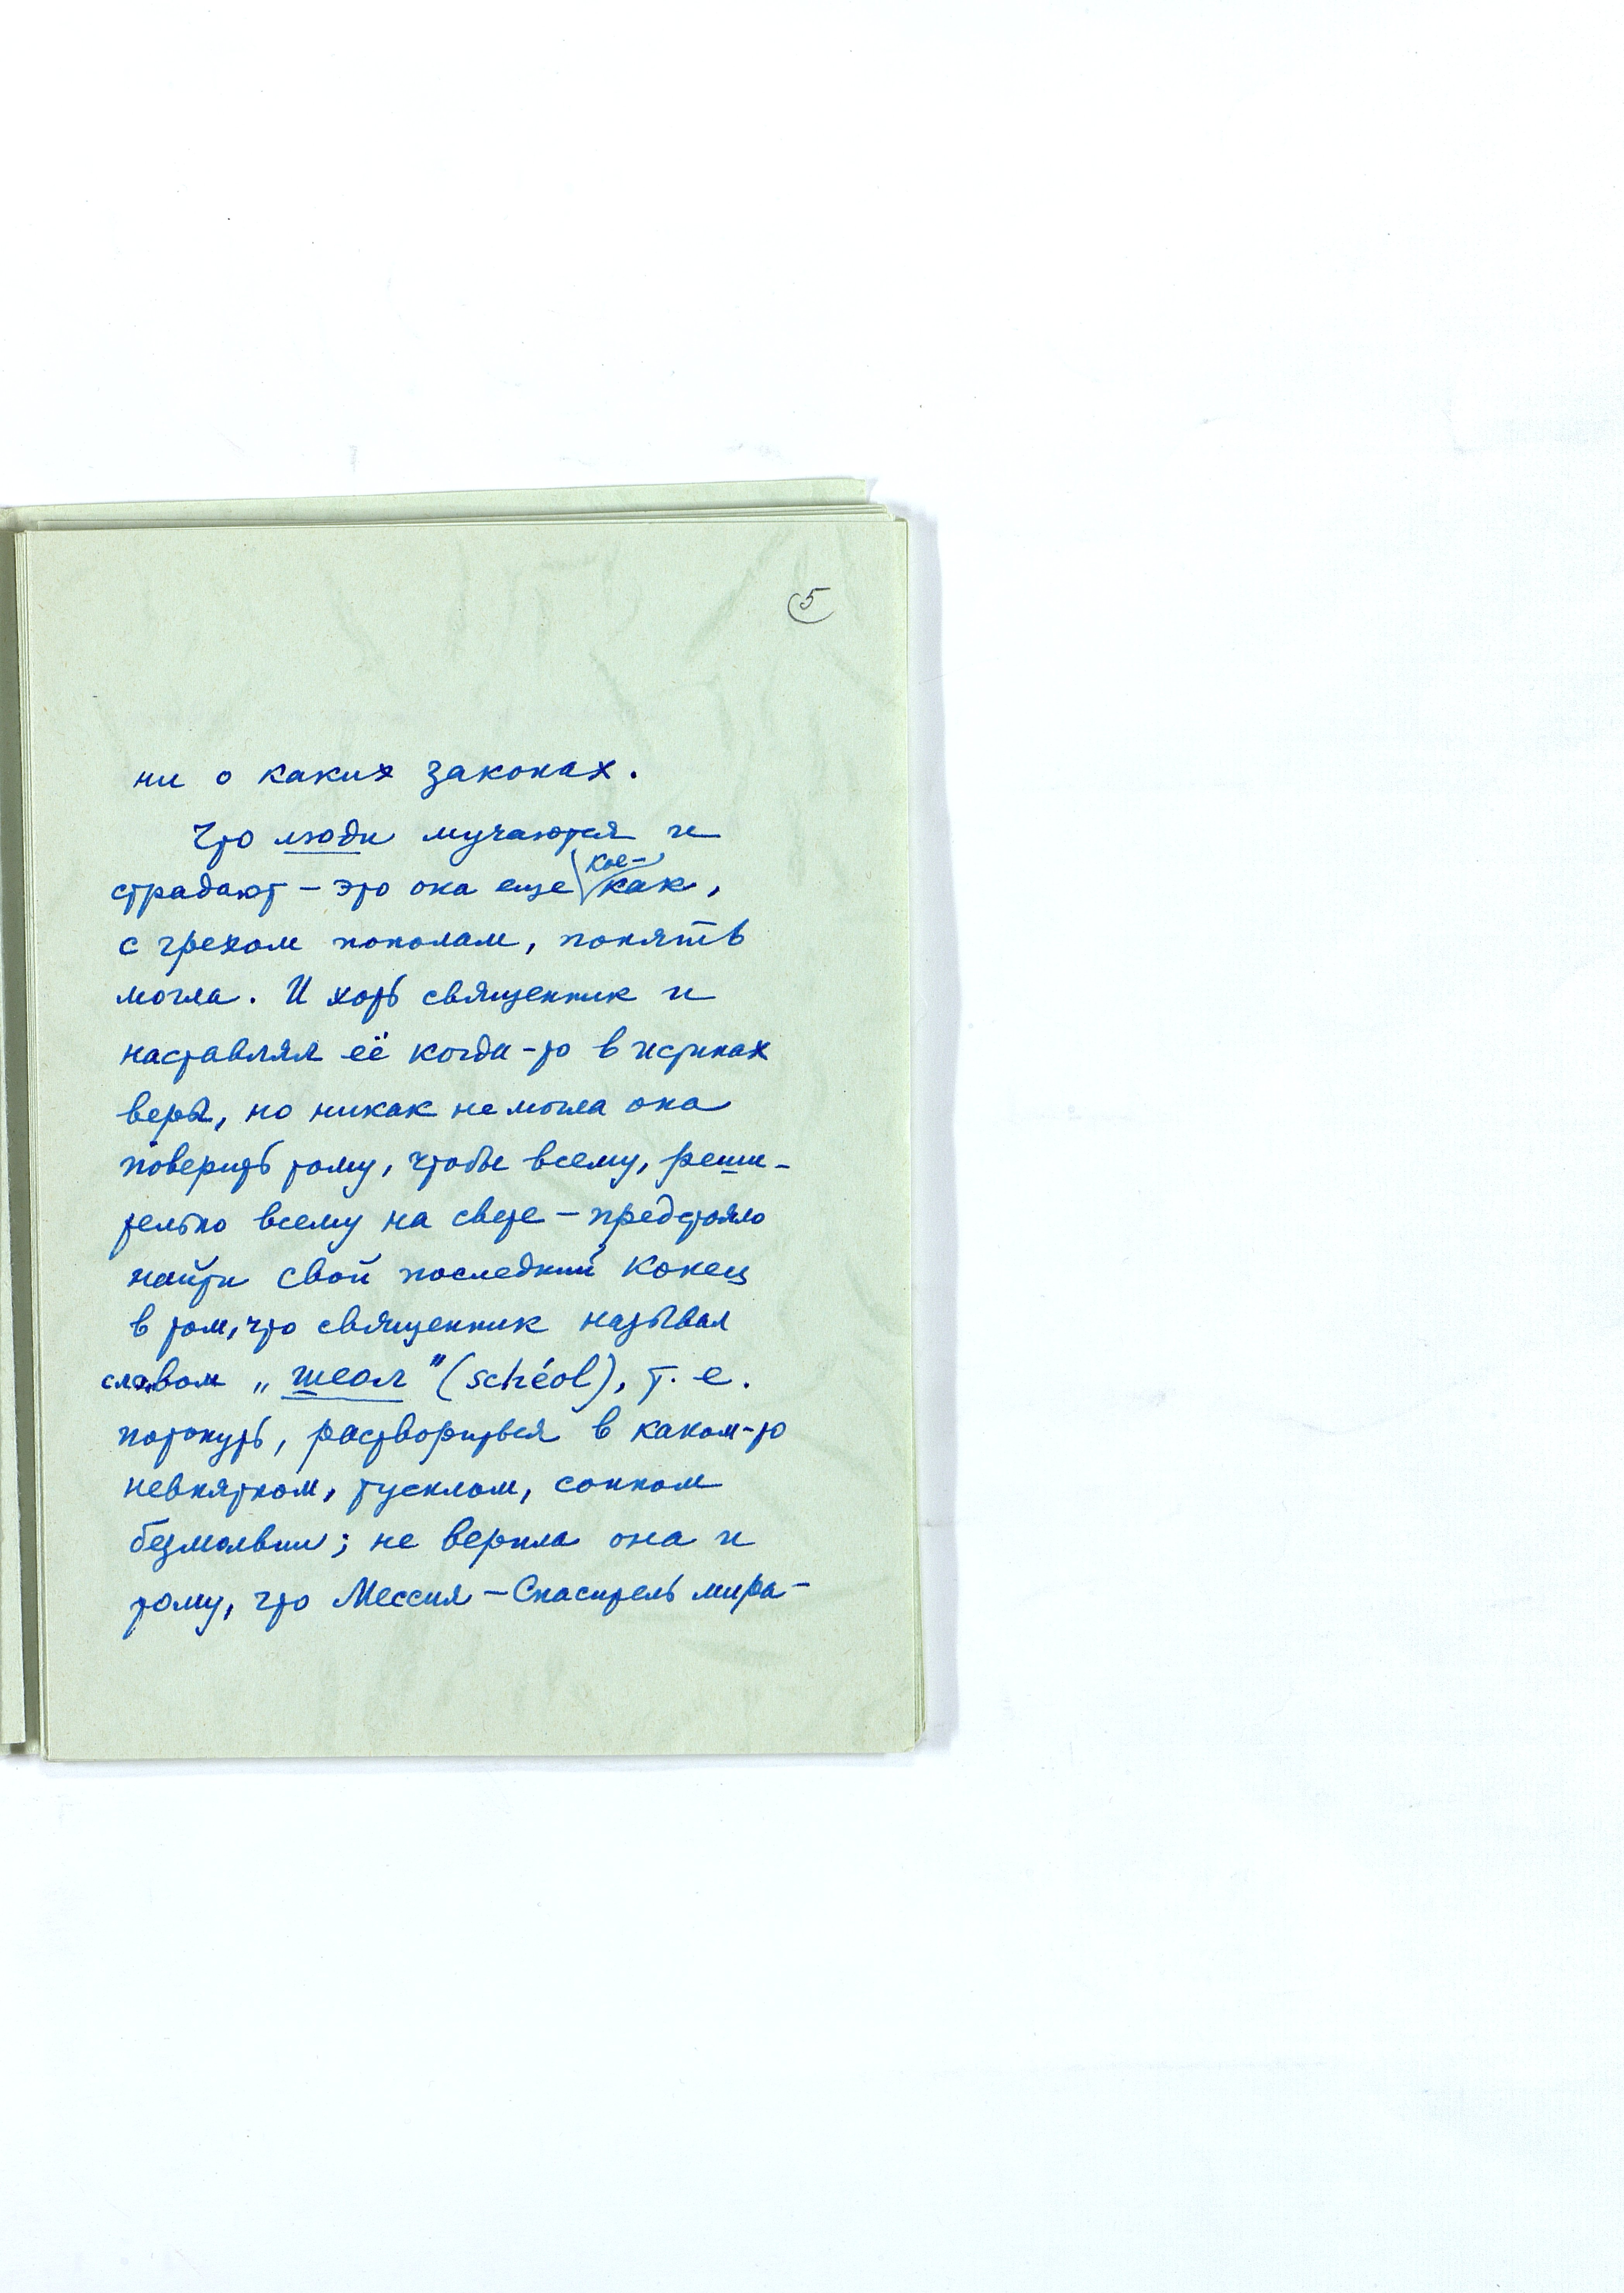 5
ни о каких законах.
Что люди мучаются и
страдают – это она еще кое-как,
с грехом пополам, понять
могла. И хоть священник и
наставлял её когда-то в истинах
веры, но никак не могла она
поверить тому, чтобы всему, реши-
тельно всему на свете – предстояло
найти свой последний конец
в том, что священник называл
словом „шеол" (schéol), т. е.
потонуть, раствориться в каком-то
невнятном, тусклом, сонном
безмолвии; не верила она и
тому, что Мессия – Спаситель мира –